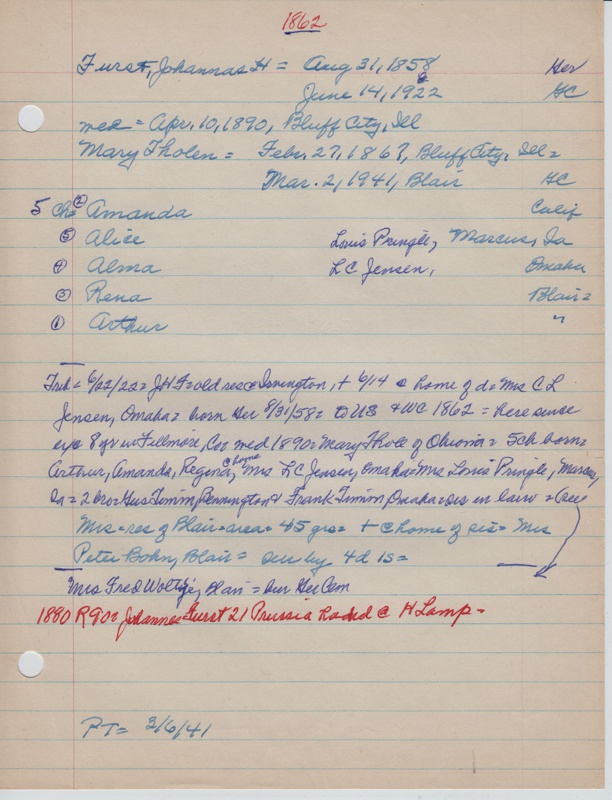 1862
Furst, Johannas H = Aug 31, 1858 Ger
June 14, 1922 HC
med = Apr. 10, 1890, Bluff City, Ill
Mary Tholen = Febr. 27, 1867, Bluff City, Ill =
Mar. 2, 1941, Blair HC
5 Ch = ② Amanda Calif
⑤ Alice Louis Pringle, Marcus, Ia
④ Alma L C Jensen, Omaha
③ Rena Blair =
① Arthur "
Trib = 6/22/22 = JH F = old res @ Irvington, + 6/14 @ home of d = Mrs C L
Jensen, Omaha = born Ger 8/31/58 = to US & WC 1862 = here since
exc 8 yr in Fillmore, Co = med 1890 = Mary Thole of = 5 ch born =
Arthur, Amanda, @ home, Mrs L C Jensen, Omaha = Mrs Louis Pringle, Marcus,
Ia = 2 bro = Gus Timm Bennington & Frank Timm Omaha = sis in law = (see
Mrs = res of Blair = area = 45 yrs = + @ home of sis = Mrs
Peter Bohn, Blair = sur by 4 d 1 s =
Mrs Fred Woltje, Blair = bur Ger Cem
1880 R 900 Johannes Furst 21 Prussia @ H Lamp =
PT = 3/6/41